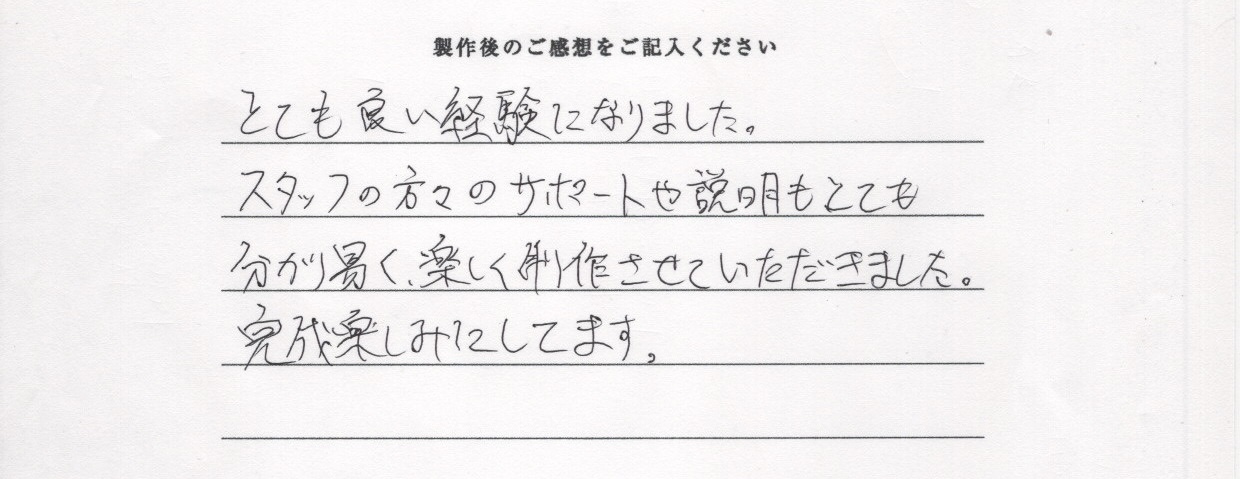 製作後のご感想をご記入ください
とても良い経験になりました。
スタッフの方々のサポートや説明もとても
分がり易く、楽しく制作させていただきました。
完成楽しみにしてます。